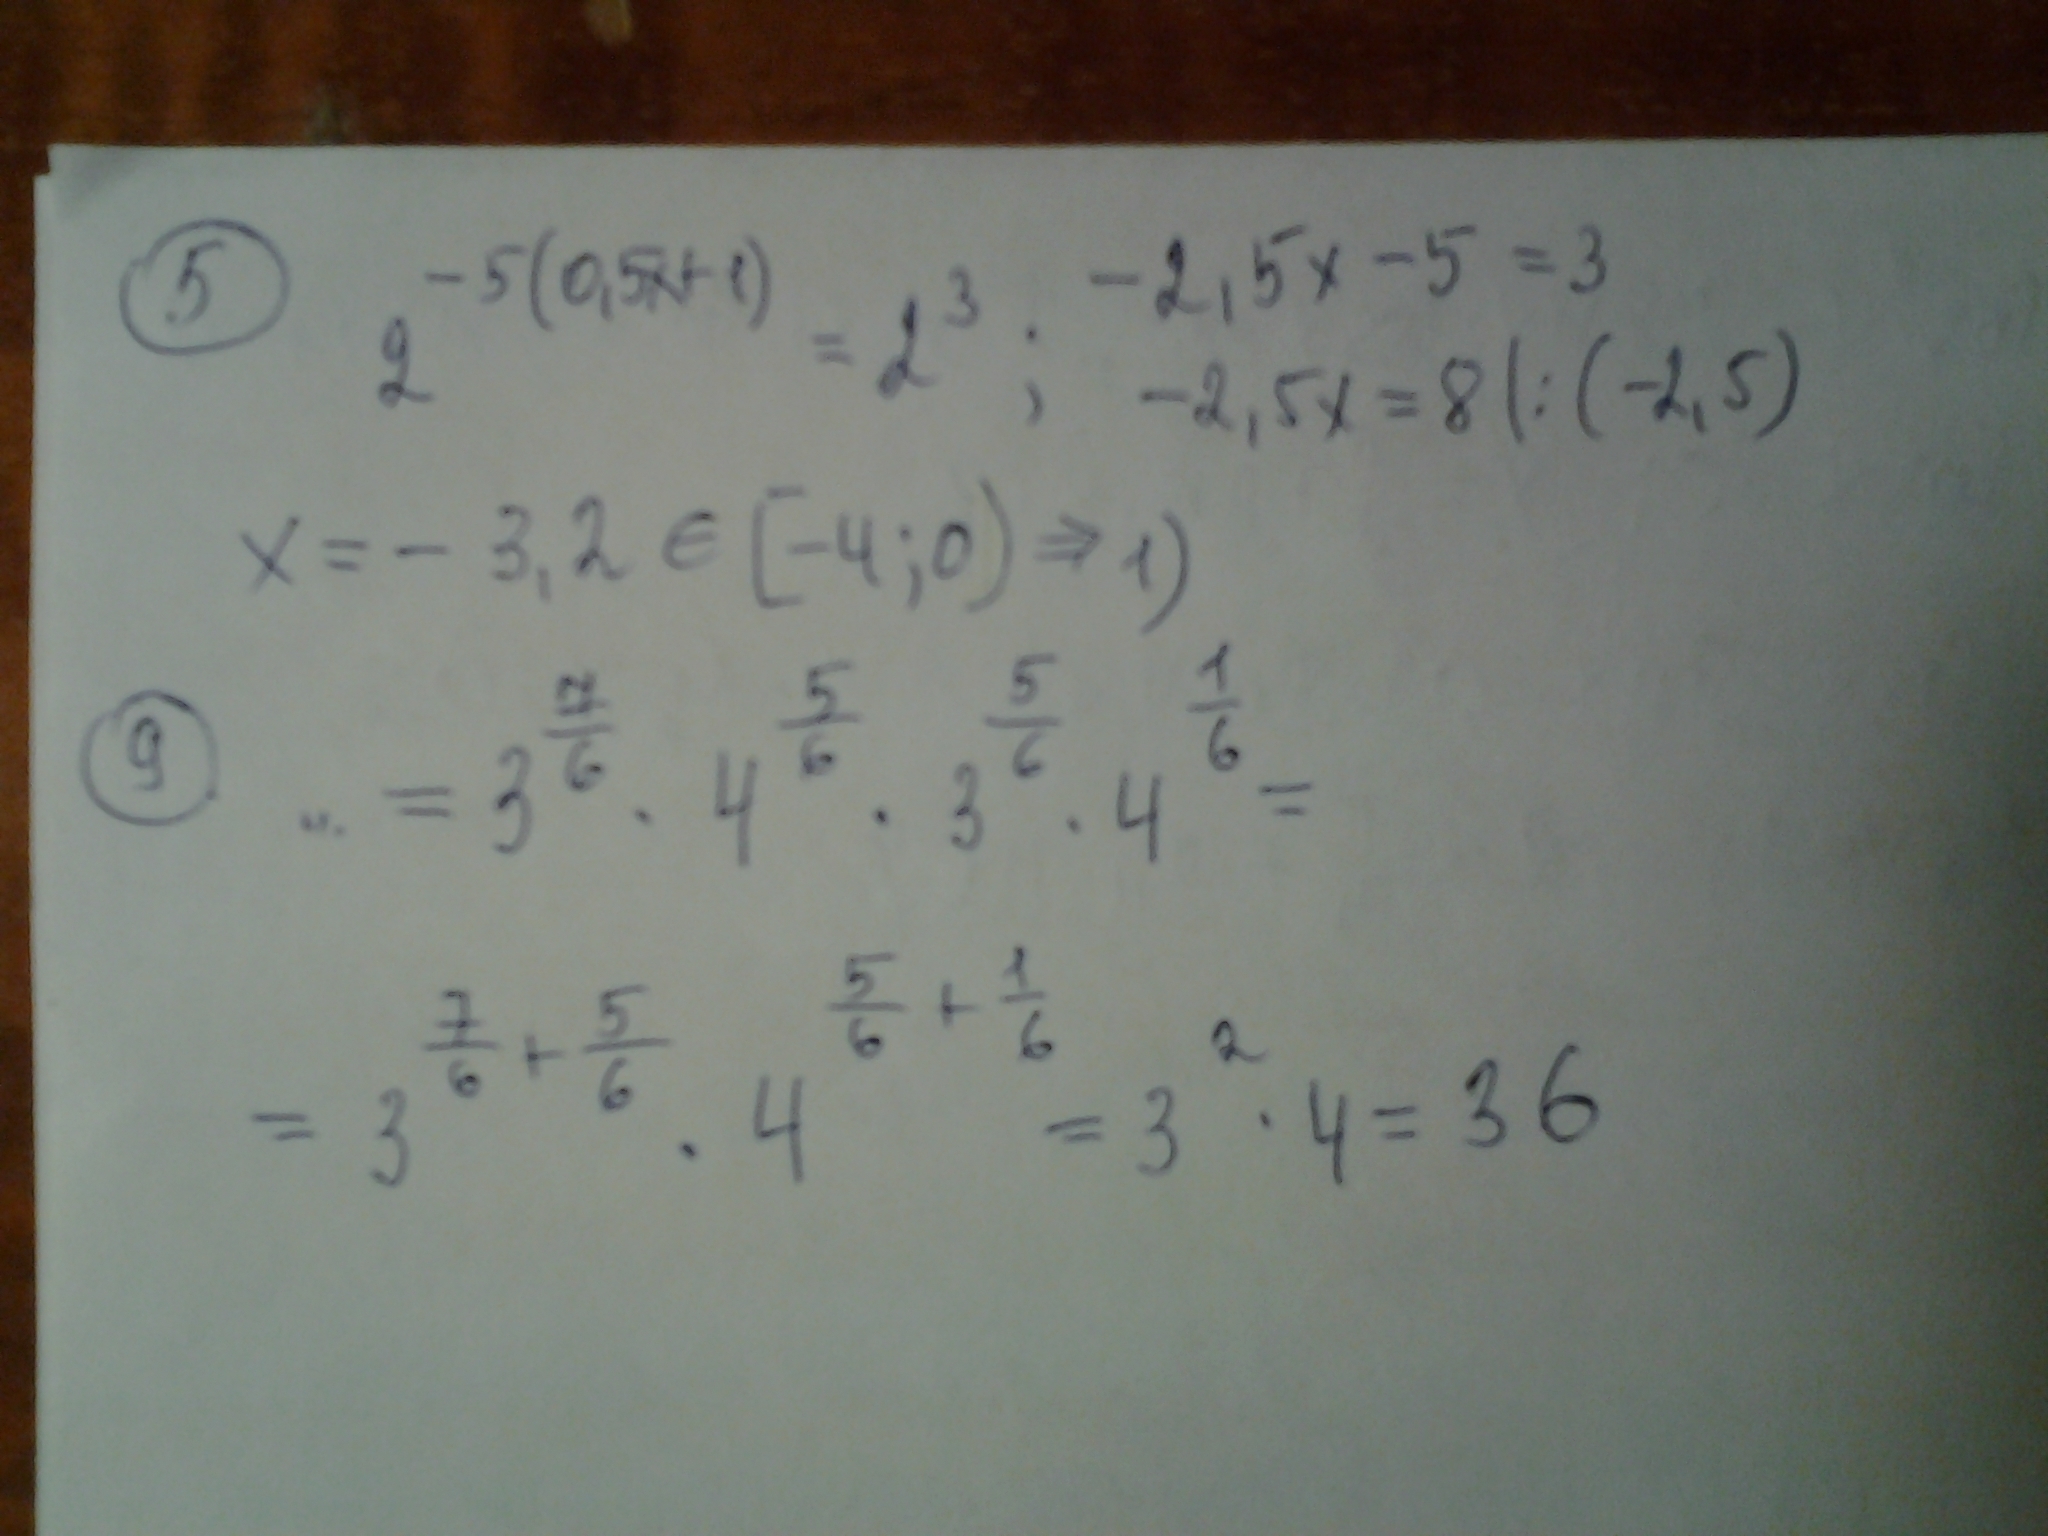 5 2^(-5(0,5x+1)) = 2^3 ; -2,5x - 5 = 3
-2,5x = 8 |:(-2,5)
x = - 3,2 ∈ [-4;0) ⇒ 1)
9 ... = 3^(7/6) · 4^(5/6) · 3^(5/6) · 4^(1/6) =
= 3^(7/6 + 5/6) · 4^(5/6 + 1/6) = 3^2 · 4 = 36